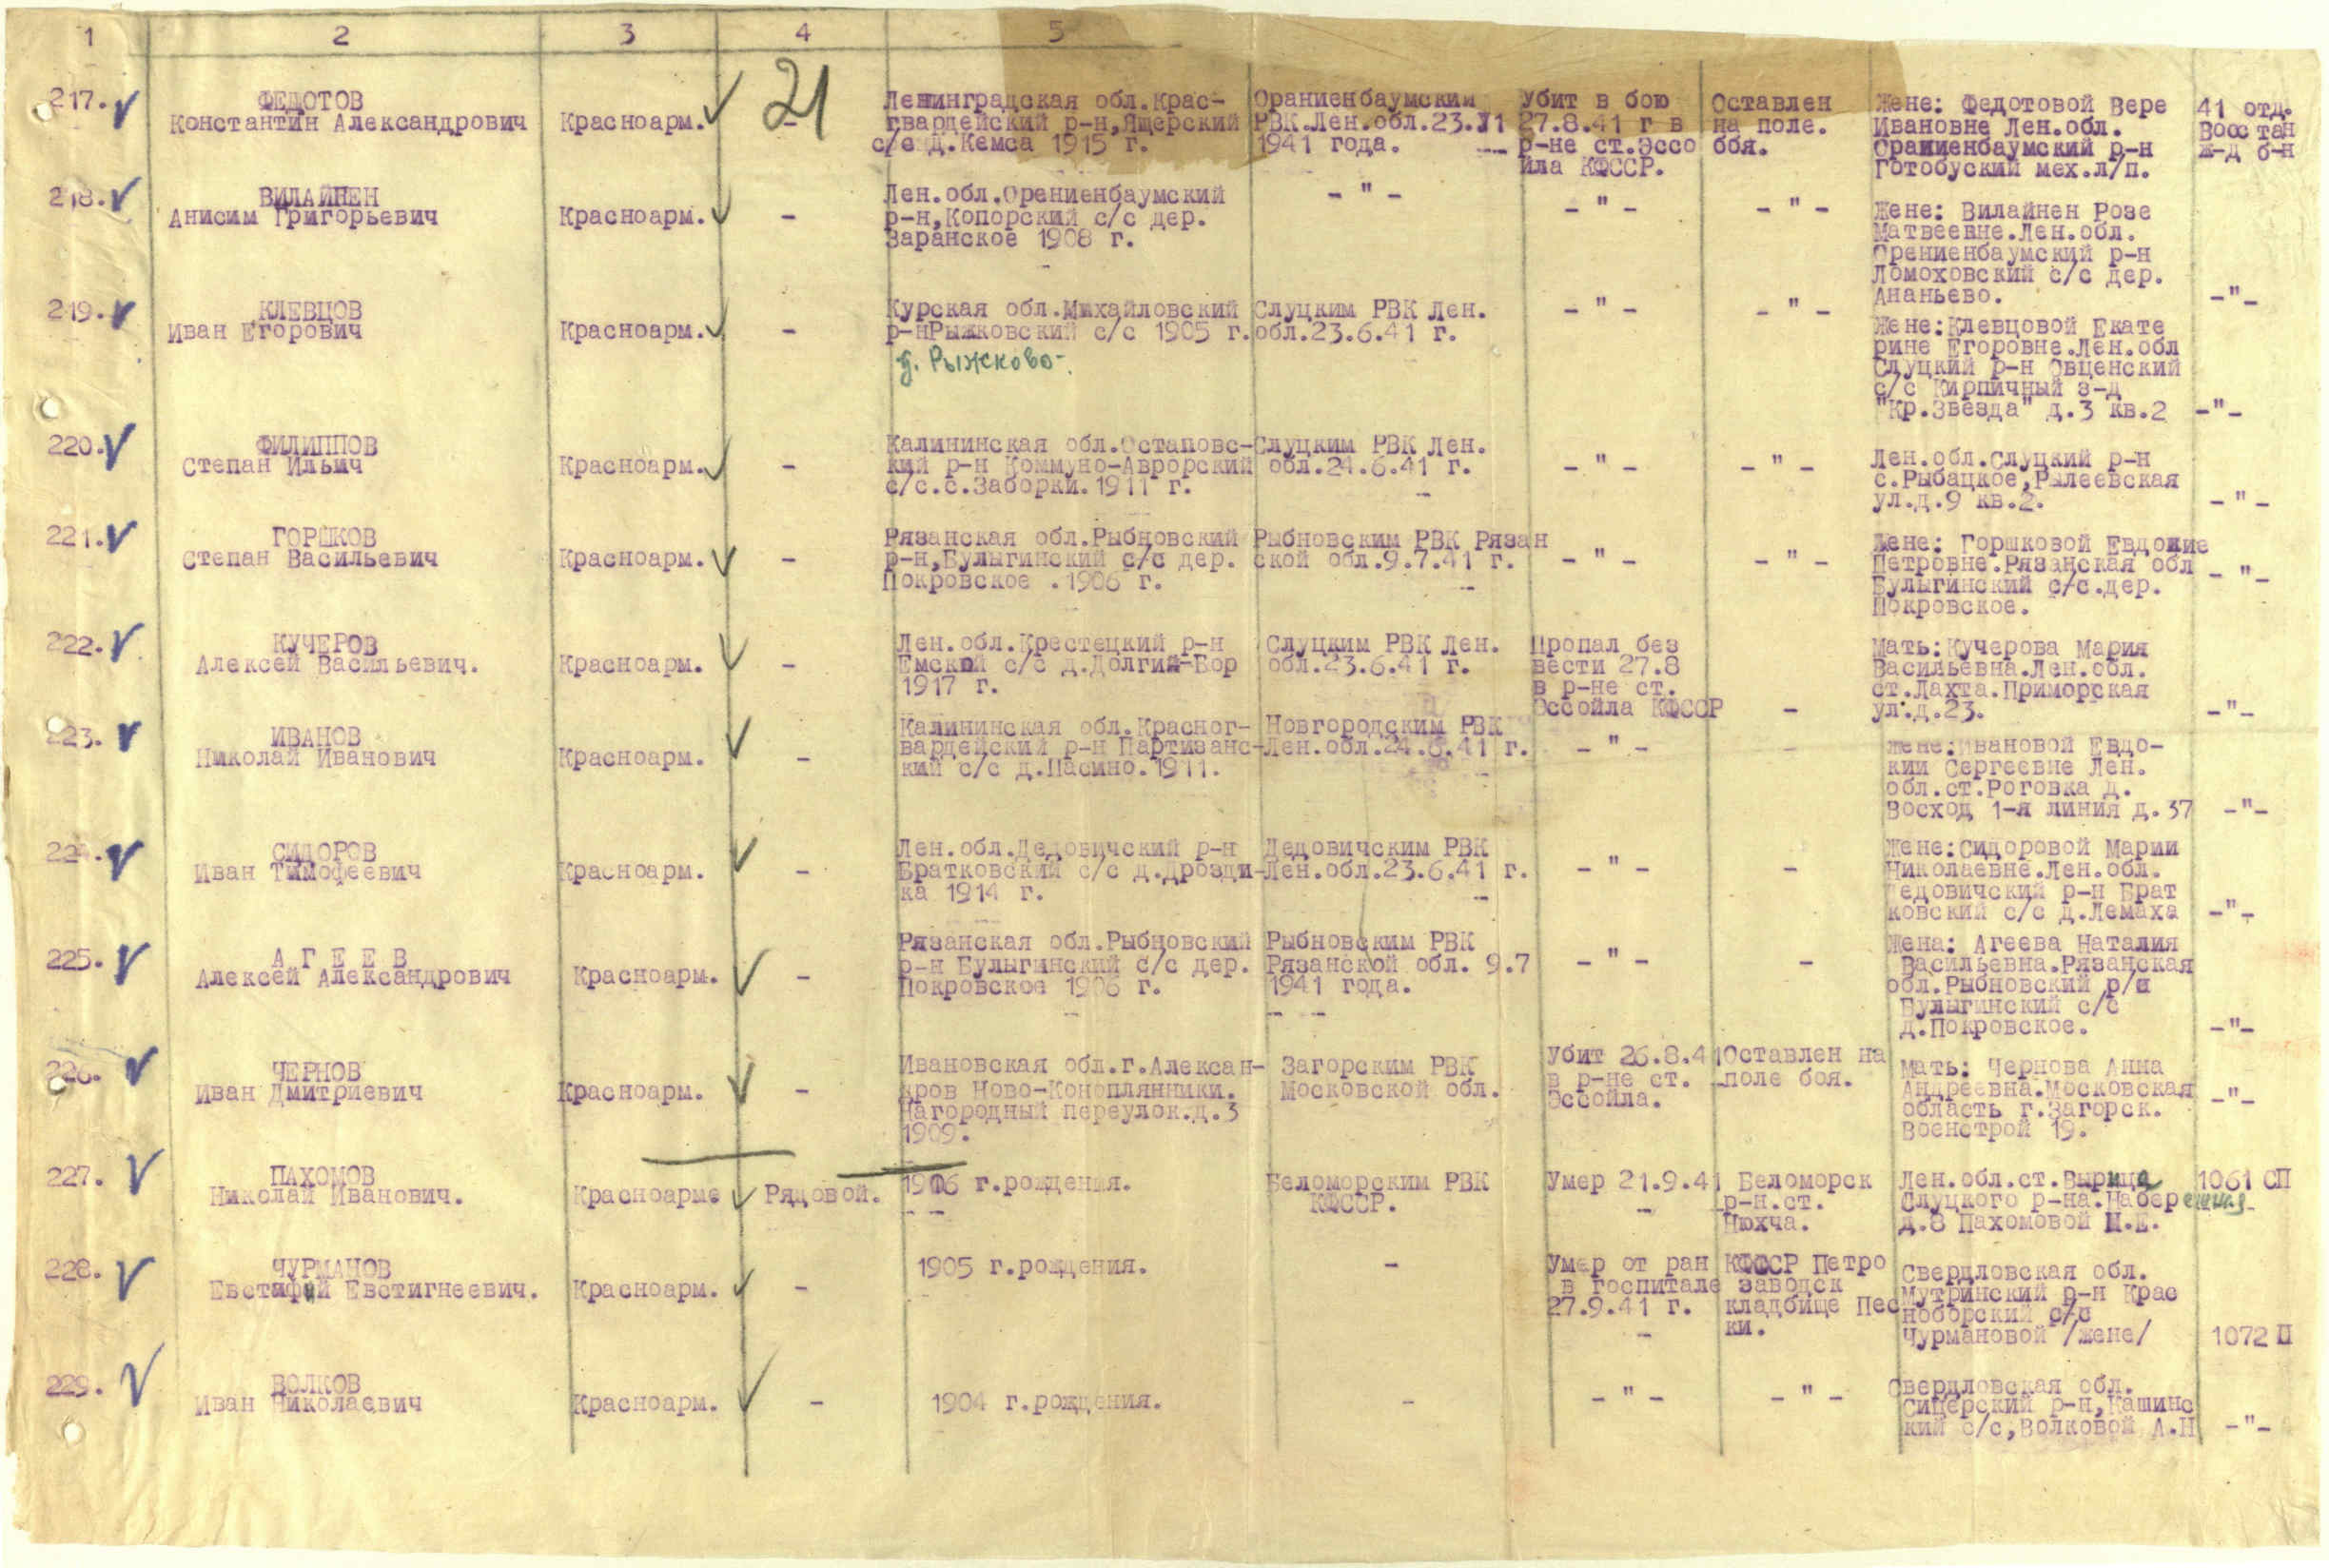 1 2 3 4 5
21
217. ФЕДОТОВ
Константин Александрович
Красноарм.
-
Ленинградская обл.Крас-
гвардейский р-н,Ящерский
с/с д.Кемса 1915 г.
Ораниенбаумским
РВК.Лен.обл.23.У1
1941 года.
Убит в бою
27.8.41 г в
р-не ст.Эссо
йла КФССР.
Оставлен
на поле.
боя.
Жене: Федотовой Вере
Ивановне Лен.обл.
Ораниенбаумский р-н
Готобуский мех.л/п.
41 отд.
Восстан
ж-д б-н
218. ВИЛАЙНЕН
Анисим Григорьевич
Красноарм.
-
Лен.обл.Орениенбаумский
р-н,Копорский с/с дер.
Заранское 1908 г.
- " -
- " -
- " -
Жене: Вилайнен Розе
Матвеевне.Лен.обл.
Орениенбаумский р-н
Ломоховский с/с дер.
Ананьево.
-"-
219. КЛЕВЦОВ
Иван Егорович
Красноарм.
-
Курская обл.Михайловский
р-нРыжковский с/с 1905 г.
д. Рыжково-.
Слуцким РВК Лен.
обл.23.6.41 г.
- " -
- " -
Жене:Клевцовой Екате
рине Егоровне.Лен.обл
Слуцкий р-н Овценский
с/с Кирпичный з-д
"Кр.Звезда" д.3 кв.2
-"-
220. ФИЛИППОВ
Степан Ильич
Красноарм.
-
Калининская обл.Остаповс-
кий р-н Коммуно-Аврорский
с/с.с.Заборки.1911 г.
Слуцким РВК Лен.
обл.24.6.41 г.
- " -
- " -
Лен.обл.Слуцкий р-н
с.Рыбацкое,Рылеевская
ул.д.9 кв.2.
- " -
221. ГОРШКОВ
Степан Васильевич
Красноарм.
-
Рязанская обл.Рыбновский
р-н,Булыгинский с/с дер.
Покровское .1906 г.
Рыбновским РВК Рязан
ской обл.9.7.41 г.
- " -
- " -
Жене: Горшковой Евдокие
Петровне.Рязанская обл
Булыгинский с/с.дер.
Покровское.
- "-
222. КУЧЕРОВ
Алексей Васильевич.
Красноарм.
-
Лен.обл.Крестецкий р-н
Емской с/с д.Долгий-Бор
1917 г.
Слуцким РВК Лен.
обл.23.6.41 г.
Пропал без
вести 27.8
в р-не ст.
Эссойла КФССР
-
Мать:Кучерова Мария
Васильевна.Лен.обл.
ст.Лахта.Приморская
ул.д.23.
-"-
223. ИВАНОВ
Николай Иванович
Красноарм.
-
Калининская обл.Красног-
вардейский р-н Партизанс-
кий с/с д.Пасино.1911.
Новгородским РВК
Лен.обл.24.6.41 г.
- " -
-
Жене:Ивановой Евдо-
кии Сергеевне Лен.
обл.ст.Роговка д.
Восход 1-я линия д.37
-"-
224. СИДОРОВ
Иван Тимофеевич
Красноарм.
-
Лен.обл.Дедовичский р-н
Братковский с/с д.Дрозди-
ка 1914 г.
Дедовичским РВК
Лен.обл.23.6.41 г.
- " -
-
Жене:Сидоровой Марии
Николаевне.Лен.обл.
Дедовичский р-н Брат
ковский с/с д.Лемаха
-"-
225. А Г Е Е В
Алексей Александрович
Красноарм.
-
Рязанская обл.Рыбновский
р-н Булыгинский с/с дер.
Покровское 1906 г.
Рыбновским РВК
Рязанской обл. 9.7
1941 года.
- " -
-
Жена: Агеева Наталия
Васильевна.Рязанская
обл.Рыбновский р/н
Булыгинский с/с
д.Покровское.
-"-
226. ЧЕРНОВ
Иван Дмитриевич
Красноарм.
-
Ивановская обл.г.Алексан-
дров Ново-Коноплянники.
Нагородный переулок.д.3
1909.
Загорским РВК
Московской обл.
Убит 26.8.41
в р-не ст.
Эссойла.
Оставлен на
поле боя.
Мать: Чернова Анна
Андреевна.Московская
область г.Загорск.
Военстрой 19.
-"-
227. ПАХОМОВ
Николай Иванович.
Красноарме
Рядовой.
1906 г.рождения.
Беломорским РВК
КФССР.
Умер 21.9.41
Беломорск
р-н.ст.
Нюхча.
Лен.обл.ст.Вырица
Слуцкого р-на.Набережная
д.8 Пахомовой М.Е.
1061 СП
228. ЧУРМАНОВ
Евстафий Евстигнеевич.
Красноарм.
-
1905 г.рождения.
-
Умер от ран
в госпитале
27.9.41 г.
КФССР Петро
заводск
кладбище Пес
ки.
Свердловская обл.
Мутринский р-н Крас
ноборский с/с
Чурмановой /жене/
1072 П
229. ВОЛКОВ
Иван Николаевич
Красноарм.
-
1904 г.рождения.
-
- " -
- " -
Свердловская обл.
Сицерский р-н,Кашинс
кий с/с,Волковой А.Н
-"-